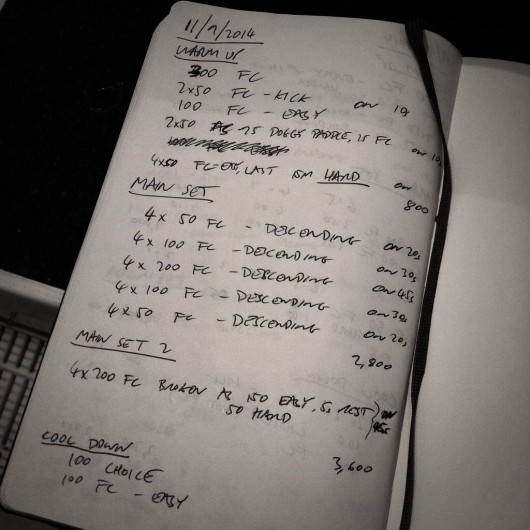 11/9/2014
WARM UP
300 FC
2x50 FC - KICK on 10
100 FC - EASY
2x50 AS 25 DOGGY PADDLE, 25 FC on 10
4x50 FC-EASY, LAST 15M HARD on
800
MAIN SET
4x 50 FC - DESCENDING on 20s
4x 100 FC - DESCENDING on 30s
4x 200 FC - DESCENDING on 45s
4x 100 FC - DESCENDING on 30s
4x 50 FC - DESCENDING on 20s
2,800
MAIN SET 2
4x200 FC BROKEN AS 150 EASY, 5s REST) ON
50 HARD
3,600
COOL DOWN
100 CHOICE
100 FC - EASY